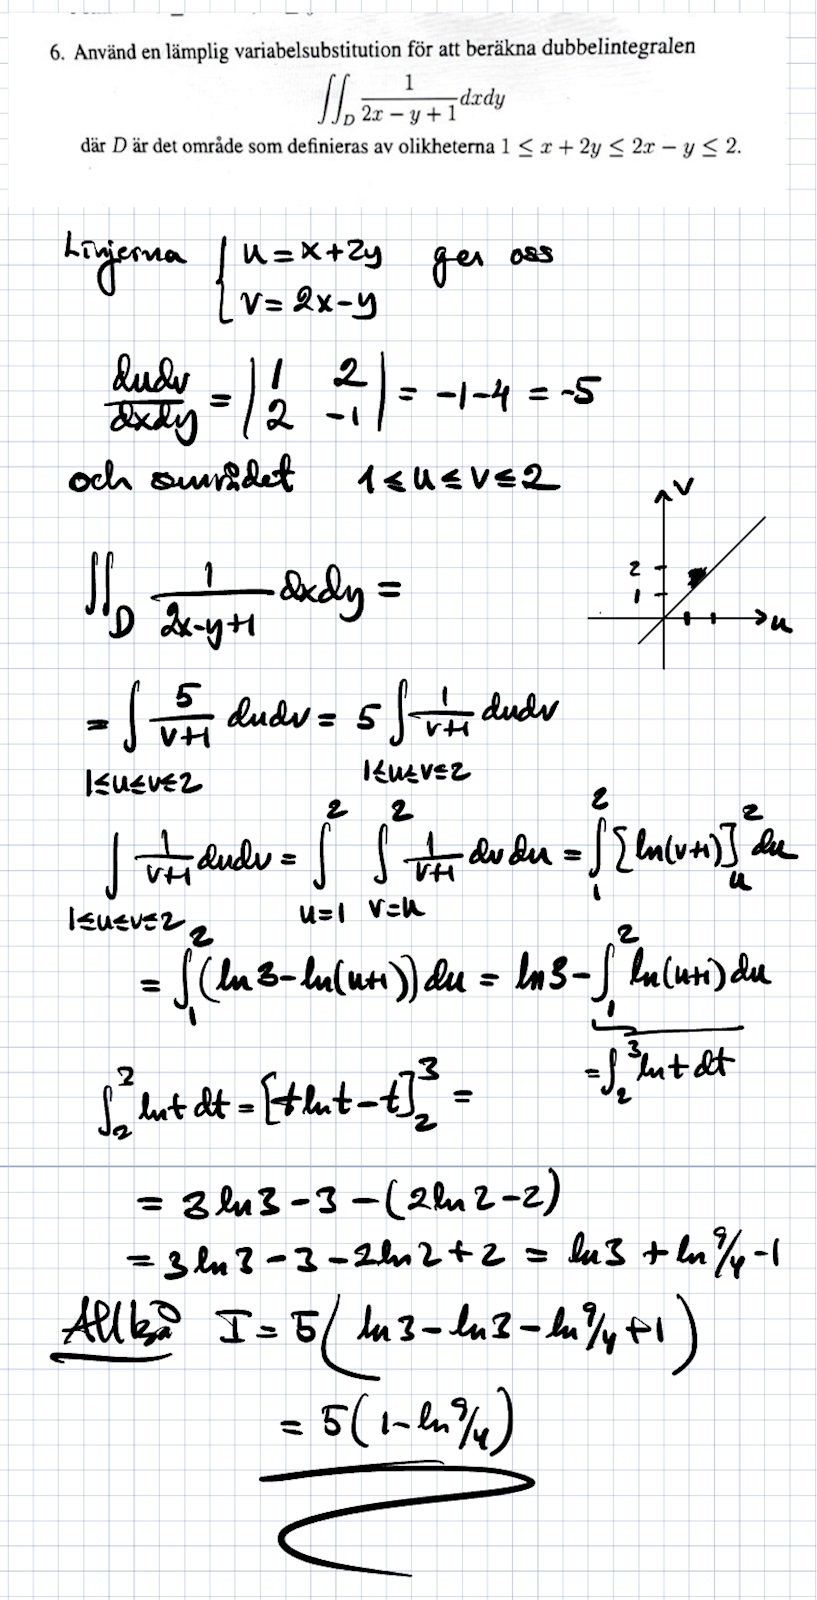 6. Använd en lämplig variabelsubstitution för att beräkna dubbelintegralen
∬_D 1/(2x − y + 1) dxdy
där D är det område som definieras av olikheterna 1 ≤ x + 2y ≤ 2x − y ≤ 2.
Linjerna { u = x+2y ges oss
v = 2x-y
dudv/dxdy = |1 2; 2 -1| = -1-4 = -5
och området 1≤u≤v≤2
v
2
1
u
∬_D 1/(2x-y+1) dxdy =
= ∫_{1≤u≤v≤2} 5/(v+1) dudv = 5 ∫_{1≤u≤v≤2} 1/(v+1) dudv
∫_{1≤u≤v≤2} 1/(v+1) dudv = ∫_{u=1}^2 ∫_{v=u}^2 1/(v+1) dv du = ∫_1^2 [ln(v+1)]_u^2 du
= ∫_1^2 (ln 3 - ln(u+1)) du = ln 3 - ∫_1^2 ln(u+1) du
= ∫_2^3 ln t dt
∫_2^3 ln t dt = [t ln t - t]_2^3 =
= 3 ln 3 - 3 - (2 ln 2 - 2)
= 3 ln 3 - 3 - 2 ln 2 + 2 = ln 3 + ln 9/4 - 1
Alltså I = 5( ln 3 - ln 3 - ln 9/4 + 1 )
= 5( 1 - ln 9/4 )